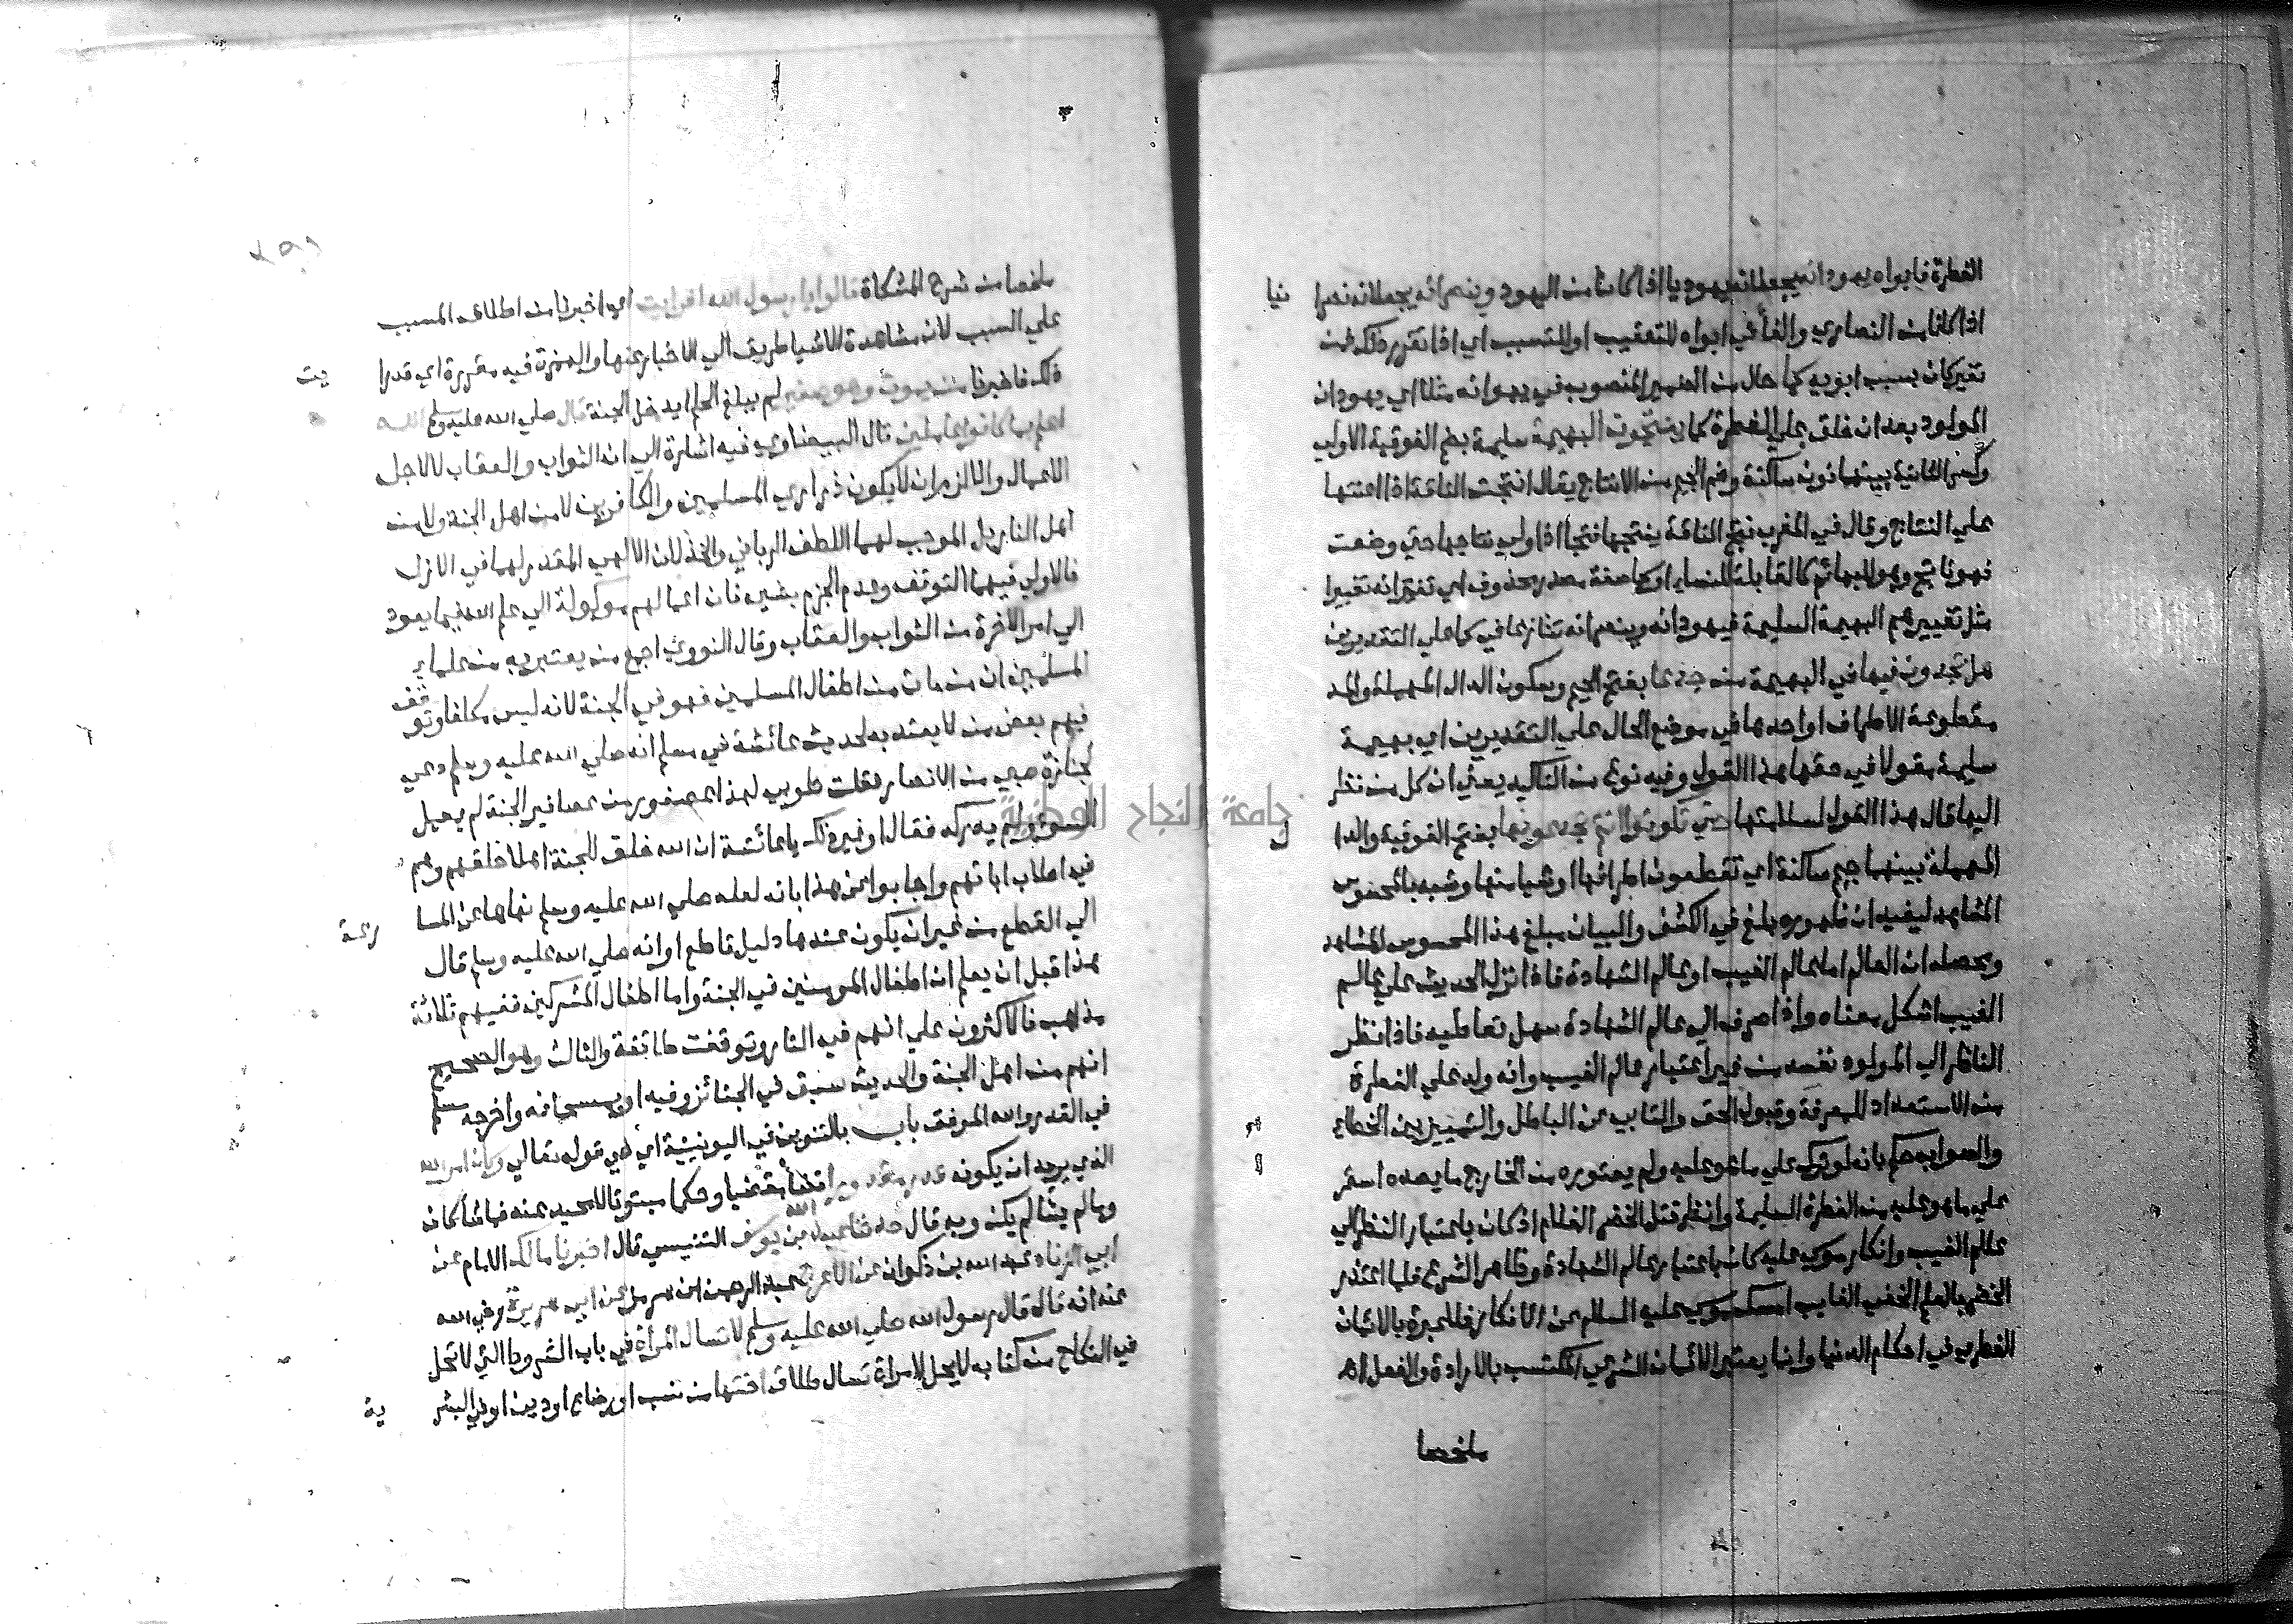 الفطرة فابواه يهودانه يجعلانه يهوديا اذا كانا من اليهود وينصرانه يجعلانه نصرا نيا
اذا كانا من النصاري والفا في ابواه للتعقيب او للتسبب اي اذا تقرر ذلك فمن
تغير كان بسبب ابويه كما حال من الضمير المنصوب في يهودانه مثلا اي يهودان
المولود بعد ان خلق علي الفطرة كما تنتجون البهيمة سليمة بضم الفوقية الاولي
وكسر الثانية بينهما نون ساكنة وضم الجيم من الانتاج يقال انتجت الناقة اذا اعنتها
علي النتاج وقال في المغرب نتج الناقة ينتجها نتجا اذا ولي نتاجها حتي وضعت
فهو ناتج وهو للبهائم كالقابلة للنساء او كما صفة مصدر محذوف اي تغيرانه تغييرا
مثل تغييرهم البهيمة السليمة فيهودانه وينصرانه تنازعا في كما علي التقديرين
هل تجدون فيها في البهيمة من جدعا بفتح الجيم وسكون الدال المهملة والمد
مقطوعة الاطراف او احدها في موضع الحال علي التقديرين اي بهيمة
سليمة مقولا في حقها هذا القول وفيه نوع من التاكيد يعني ان كل من نظر
اليها قال هذا القول لسلامتها حتي تكونوا انتم تجدعونها بفتح الفوقية والدا ل
المهملة بينهما جيم ساكنة اي تقطعون اطرافها او شيا منها وشبه بالمحسوس
المشاهد ليفيد ان ظهوره بلغ في الكشف والبيان مبلغ هذا المحسوس المشاهد
ومحصله ان العالم اما عالم الغيب او عالم الشهادة فاذا نزل الحديث علي عالم
الغيب اشكل معناه واذا صرف الي عالم الشهادة سهل تعاطيه فاذا نظر
الناظر الي المولود نفسه من غير اعتبار عالم الغيب وانه ولد علي الفطرة
من الاستعداد للمعرفة وقبول الحق والتابي عن الباطل والتمييز بين الخطاء
والصواب حكم بانه لو ترك علي ما هو عليه ولم يعتوره من الخارج ما يصده استمر
علي ما هو عليه من الفطرة السليمة وانظر قتل الخضر الغلام اذ كان باعتبار النظر الي
عالم الغيب وانكار موسي عليه كان باعتبار عالم الشهادة وظاهر الشرع فلما اعتذر
الخضر بالعلم الخفي الغايب امسك موسي عليه السلام عن الانكار فلا عبرة بالايمان
الفطري في احكام الدنيا وانما يعتبر الايمان الشرعي المكتسب بالارادة والفعل اه
ملخصا
ملخصا من شرح المشكاة قالوا يا رسول الله افرايت اي اخبرنا من اطلاق المسبب
علي السبب لان مشاهدة الاشيا طريق الي الاخبار عنها والهمزة فيه مقررة اي قد را يت
ذلك فاخبرنا من يموت وهو صغير لم يبلغ الحلم ايدخل الجنة قال صلي الله عليه وسلم الله
اعلم بما كانوا عاملين قال البيضاوي فيه اشارة الي ان الثواب والعقاب لا لاجل
الاعمال والا لزم ان لا يكون ذراري المسلمين والكافرين لا من اهل الجنة ولا من
اهل النار بل الموجب لهما اللطف الرباني والخذلان الالهي المقدر لهما في الازل
فالاولي فيهما التوقف وعدم الجزم بشيء فان اعمالهم موكولة الي علم الله فيما يعود
الي امر الاخرة من الثواب والعقاب وقال النووي اجمع من يعتبر به من علماء
المسلمين ان من مات من اطفال المسلمين فهو في الجنة لانه ليس مكلفا وتوقف
فيهم بعض من لا يعتد به لحديث عائشة في مسلم انه صلي الله عليه وسلم دعي
لجنازة صبي من الانصار فقلت طوبي لهذا عصفور من عصافير الجنة لم يعمل
السوء ولم يدركه فقال او غير ذلك يا عائشة ان الله خلق للجنة اهلا خلقهم وهم
في اصلاب ابائهم واجابوا عن هذا بانه لعله صلي الله عليه وسلم نهاها عن المسا رعة
الي القطع من غير ان يكون عندها دليل قاطع او انه صلي الله عليه وسلم قال
هذا قبل ان يعلم ان اطفال المومنين في الجنة واما اطفال المشركين ففيهم ثلاثة
مذاهب فالاكثرون علي انهم في النار وتوقفت طائفة والثالث وهو الصحيح
انهم من اهل الجنة والحديث سبق في الجنائز وفيه واخرجه مسلم
في القدر والله الموفق باب بالتنوين في اليونينية اي في قوله تعالي وكان امر الله
الذي يريد ان يكونه قدرا مقدورا قضأ مقضيا وحكما مبتوتا لا محيد عنه فما شا كان
وما لم يشا لم يكن وبه قال حدثنا عبد الله بن يوسف التنيسي قال اخبرنا مالك الامام عن
ابي الزناد عبد الله بن ذكوان عن الاعرج عبد الرحمن ابن هرمز عن ابي هريرة رضي الله
عنه انه قال قال رسول الله صلي الله عليه وسلم لا تسال المراة في باب الشروط التي لا تحل
في النكاح من كتابه لا يحل لامراة تسال طلاق اختها من نسب او رضاع او دين او في البشر ية
جامعة النجاح الوطنية